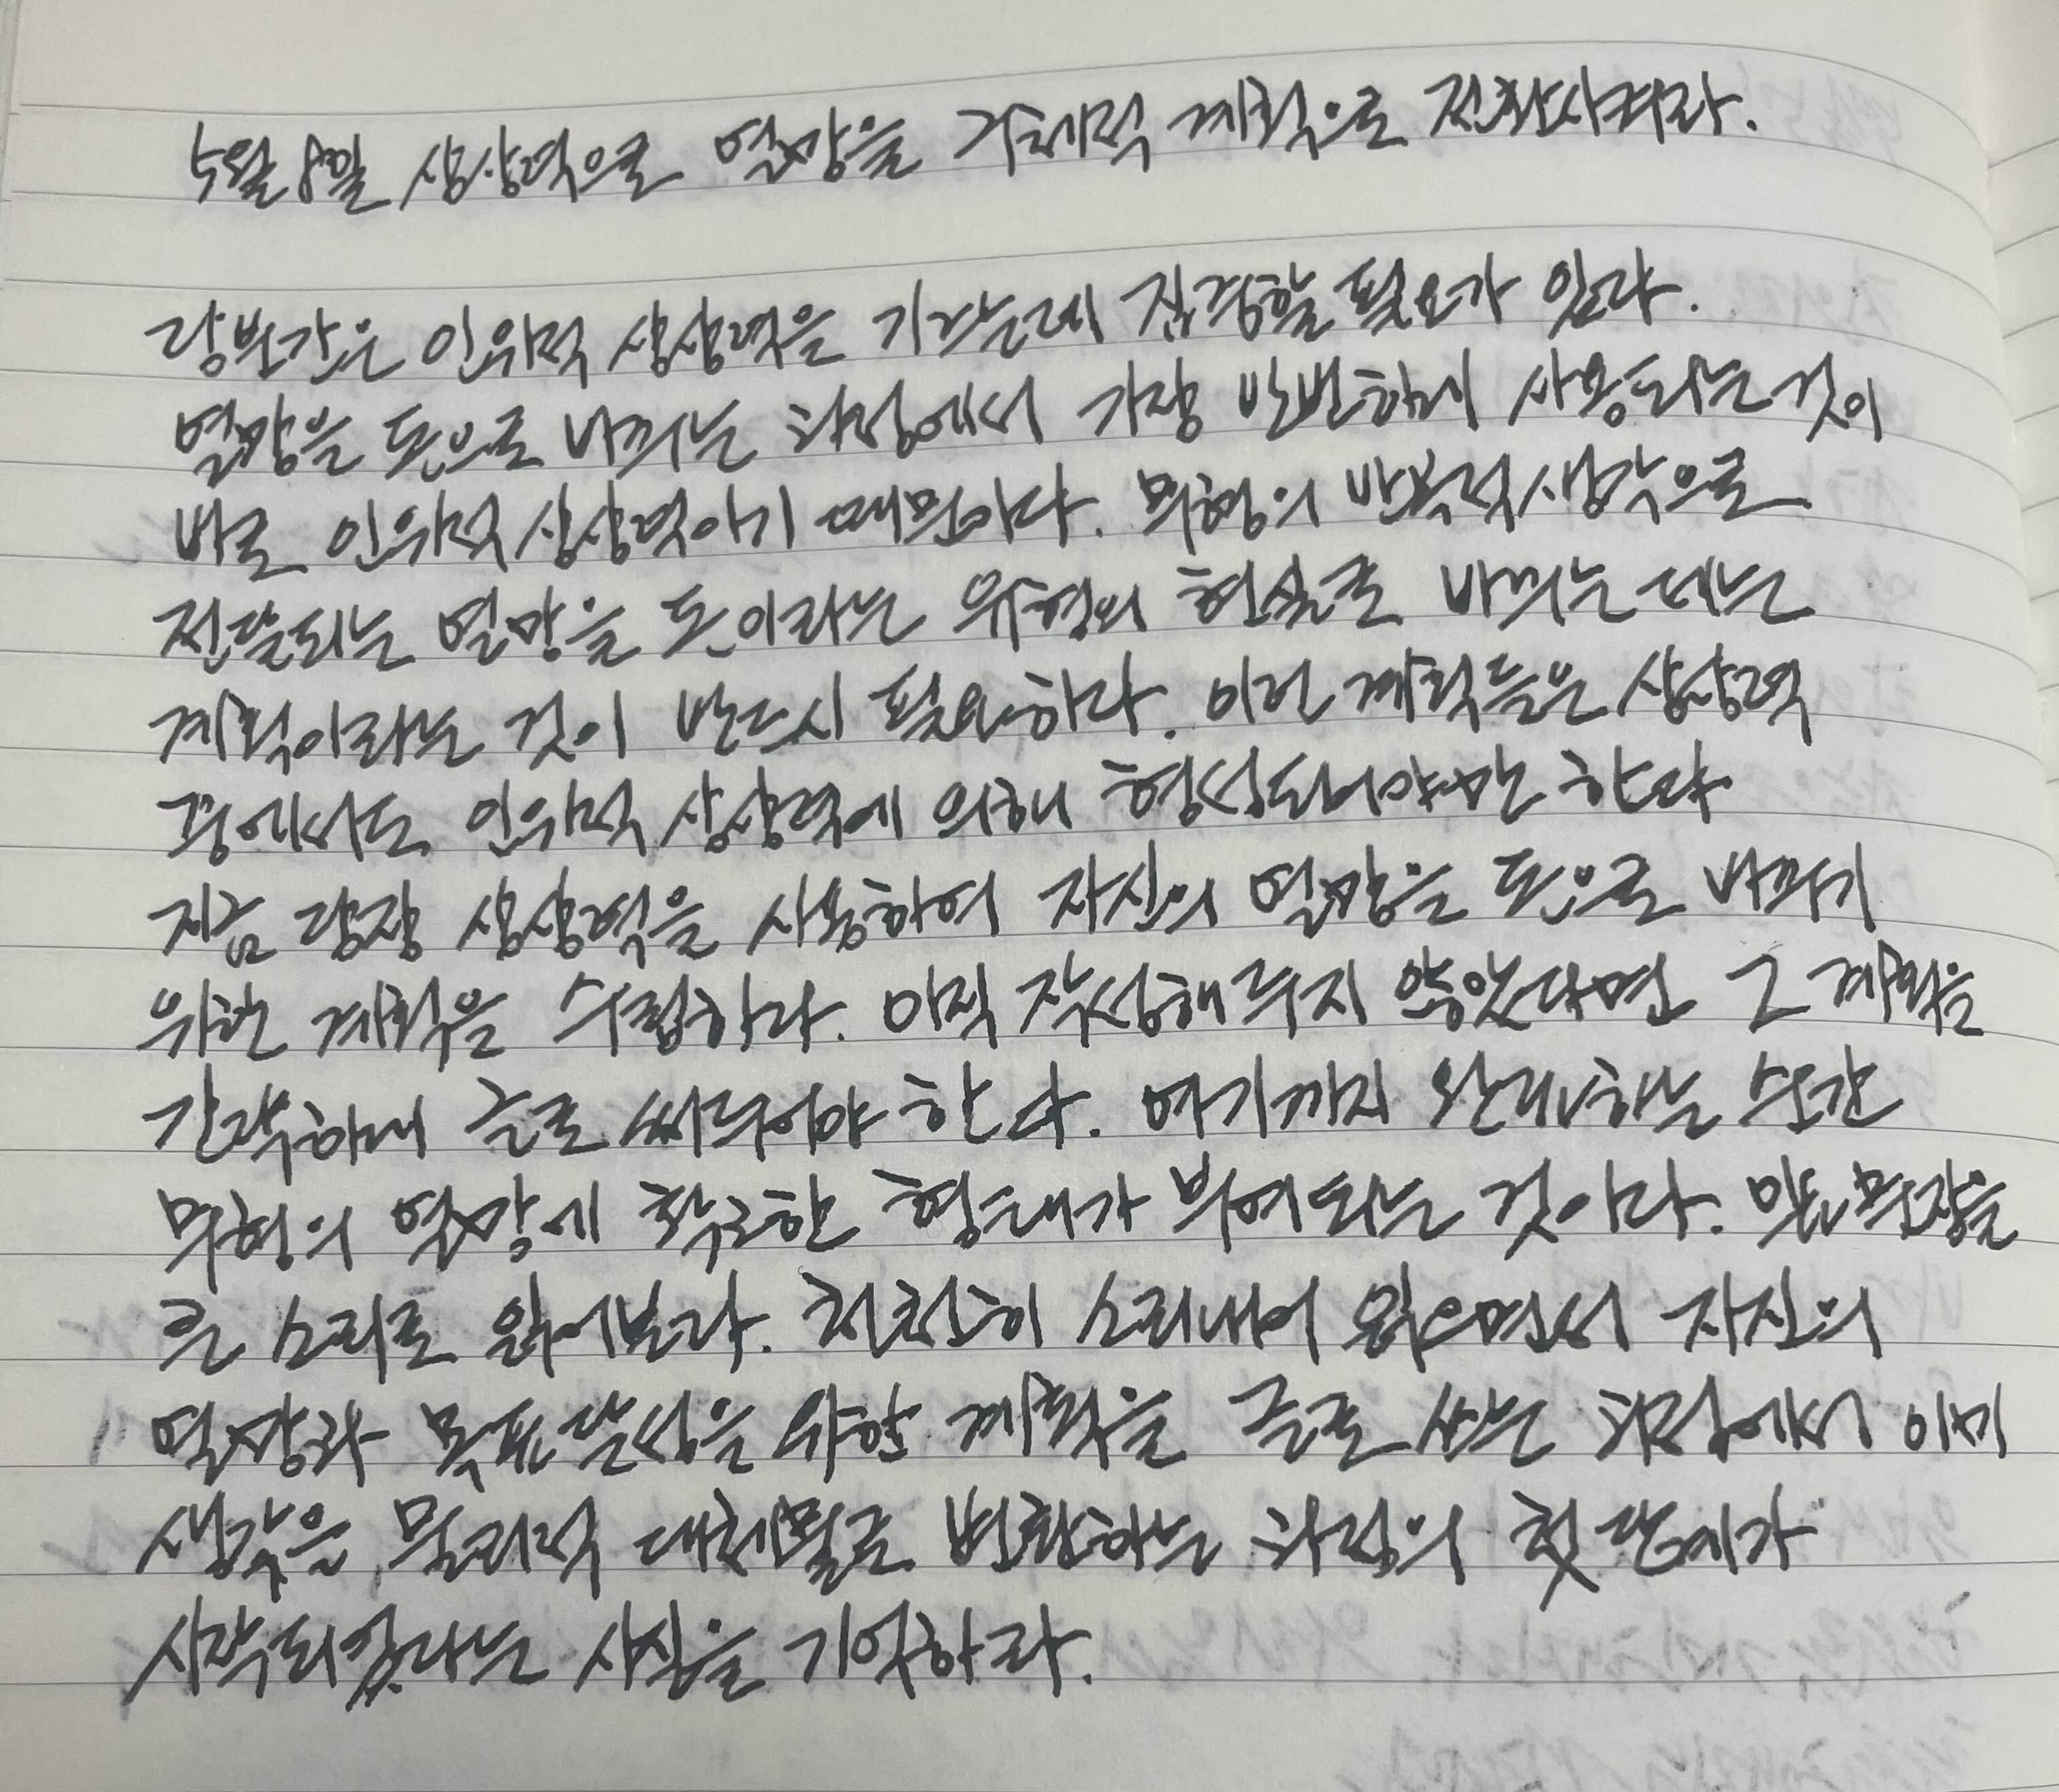 5월 8일 상상력으로 열망을 구체적 계획으로 전환시켜라.
당분간은 인위적 상상력을 기르는데 집중할 필요가 있다.
열망을 돈으로 바꾸는 과정에서 가장 빈번하게 사용되는 것이
바로 인위적 상상력이기 때문이다. 무형의 반복적 생각으로
전달되는 열망을 돈이라는 유형의 현실로 바꾸는 데는
계획이라는 것이 반드시 필요하다. 이런 계획들은 상상력
중에서도 인위적 상상력에 의해 형성되어야만 한다
지금 당장 상상력을 사용하여 자신의 열망을 돈으로 바꾸기
위한 계획을 수립하라. 아직 작성해 두지 않았다면 그 계획을
간략하게 글로 써두어야 한다. 여기까지 완료하는 순간
무형의 열망에 확고한 형태가 부여되는 것이다. 문장을
큰 소리로 읽어보라. 천천히 소리내어 읽으면서 자신의
열망과 목표 달성을 위한 계획을 글로 쓰는 과정에서 이미
생각을 물리적 대체물로 변환하는 과정의 첫 단계가
시작되었다는 사실을 기억하라.